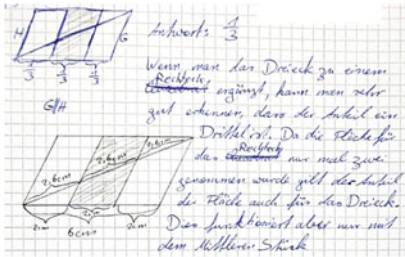 H
G
1/3 1/3 1/3
G//H
Antwort: 1/3
Wenn man das Dreieck zu einem
Rechteck ergänzt, kann man sehr
gut erkennen, dass der Anteil ein
Drittel ist. Da die Fläche für
das Rechteck nur mal zwei
genommen wurde gilt der Anteil
der Fläche auch für das Dreieck.
Dies funktioniert aber nur mit
dem Mittleren Stück
2,6cm 2,6cm 2,6cm
2cm 2cm 2cm
6cm